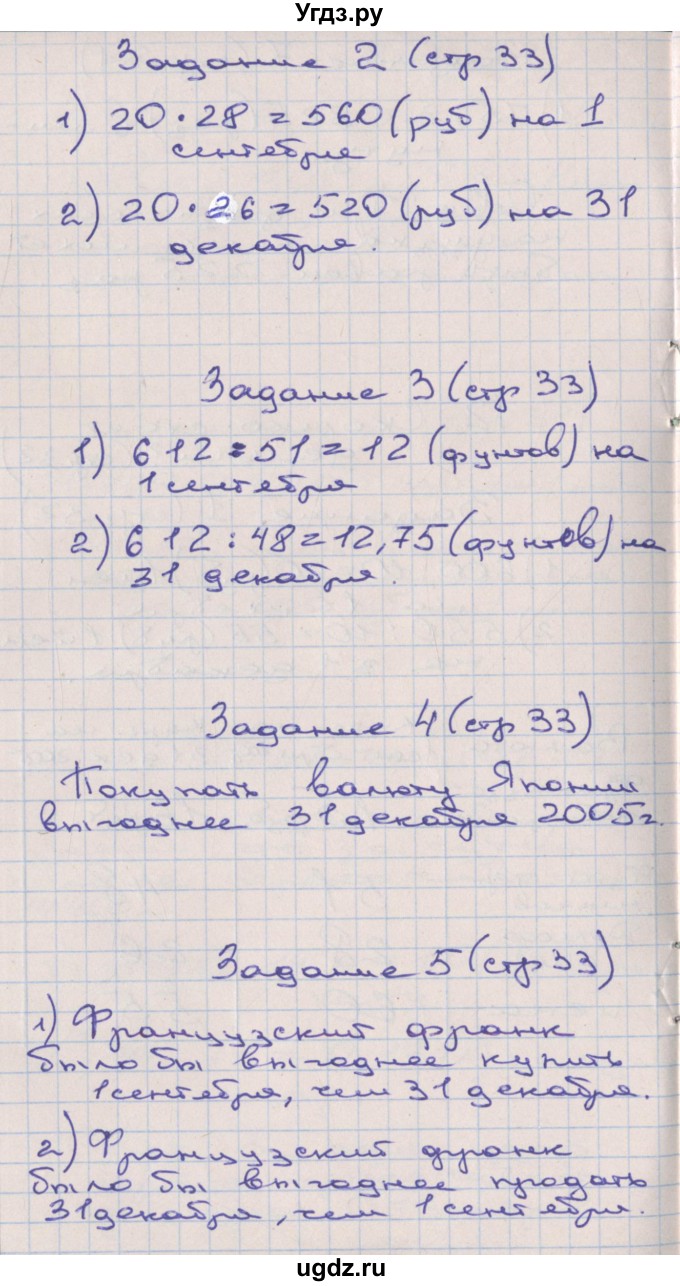 Угдз.ру
Задание 2 (стр 33)
1) 20 · 28 = 560 (руб) на 1
сентября
2) 20 · 26 = 520 (руб) на 31
декабря.
Задание 3 (стр 33)
1) 612 : 51 = 12 (фунтов) на
1 сентября
2) 612 : 48 = 12,75 (фунтов) на
31 декабря.
Задание 4 (стр 33)
Покупать валюту Японии
выгоднее 31 декабря 2005г.
Задание 5 (стр 33)
1) Французский франк
было бы выгоднее купить
1 сентября, чем 31 декабря.
2) Французский франк
было бы выгоднее продать
31 декабря, чем 1 сентября.
ugdz.ru